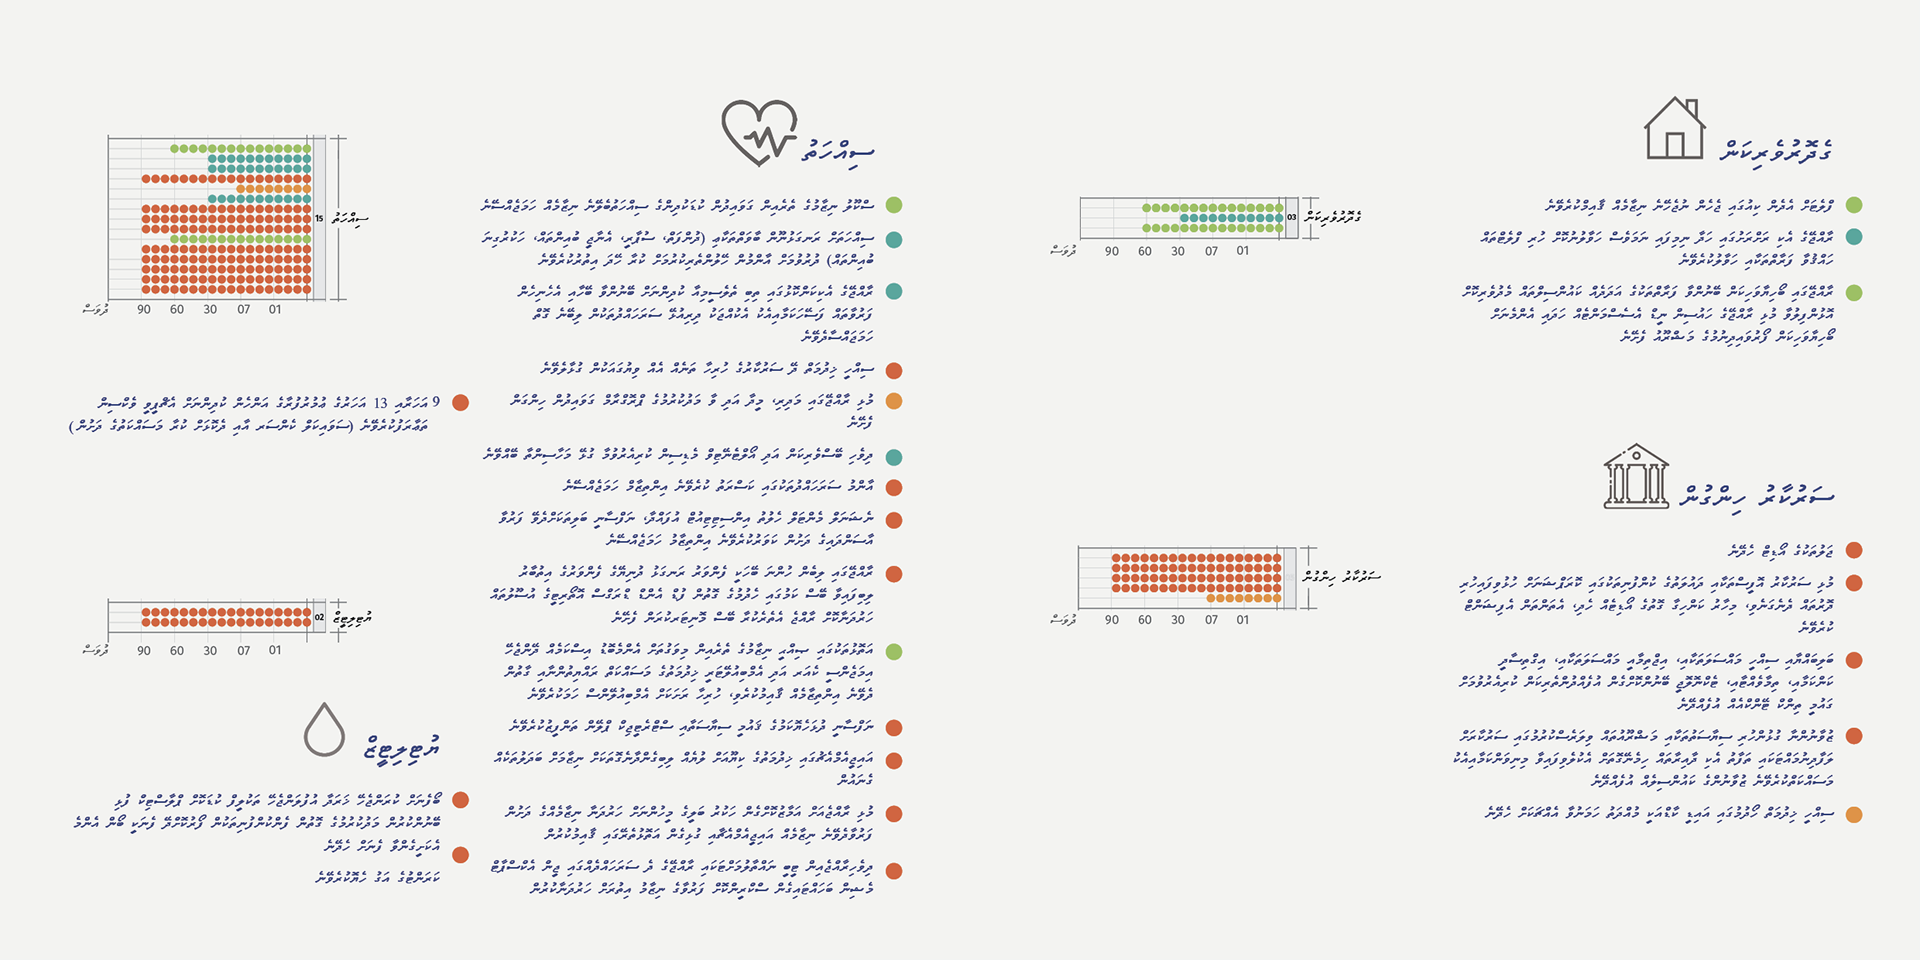 ގެދޮރުވެރިކަން
ފްލެޓަށް އެދެން ކިއުގައި ޖެހެން ނުޖެހޭނެ ނިޒާމެއް ޤާއިމުކުރެވޭނެ
ރާއްޖޭގެ އެކި ރަށްރަށުގައި ހަދާ ނިމިފައި ނަމަވެސް ހަވާލުނުކޮށް ހުރި ފްލެޓްތައް
ހައްޤުވާ ފަރާތްތަކާއި ހަވާލުކުރެވޭނެ
ރާއްޖޭގައި ބޯހިޔާވަހިކަން ބޭނުންވާ ފަރާތްތަކުގެ އަދަދެއް ކައުންސިލްތައް މެދުވެރިކޮށް
އޮޅުންފިލުވާ މުޅި ރާއްޖޭގެ ހައުސިން ނީޑް އެސެސްމަންޓެއް ހަދައި އެންމެނަށް
ބޯހިޔާވަހިކަން ފޯރުވައިދިނުމުގެ މަޝްރޫޢު ފެށޭނެ
ގެދޮރުވެރިކަން
03
ދުވަސް 90 60 30 07 01
ސަރުކާރު ހިންގުން
ޖަލުތަކުގެ އޯޑިޓް ހެދޭނެ
މުޅި ސަރުކާރު އޮފީސްތަކާއި ދައުލަތުގެ ކުންފުނިތަކުގައި ކޮރަޕްޝަނަށް ހުޅުވިފައިހުރި
ދޮރުތައް ދެނެގަނެވި، މިހާރު ކަންހިގާ ގޮތުގެ އޯޑިޓެއް ހެދި، އެތަންތަން އެފިޝަންޓް
ކުރެވޭނެ
ބަލިބައްޔާއި ސިއްހީ މައްސަލަތަކާއި، އިޖްތިމާޢީ މައްސަލަތަކާއި، އިގްތިސާދީ
ކަންކަމާއި، ތިމާވެއްޓާއި، ޓެކްނޮލޮޖީ ބޭނުންކޮށްގެން އުފެއްދުންތެރިކަން ކުރިއެރުވުމަށް
ގައުމީ ތިންކް ޓޭންކްއެއް އުފެއްދޭނެ
ޒުވާނުންނާ ގުޅުންހުރި ސިޔާސަތުތަކާއި މަޝްރޫޢުތައް ވިލަރެސްކުރުމުގައި ސަރުކާރަށް
ލަފާދިނުމައްޓަކައި ތަފާތު އެކި ދާއިރާތައް ހިމެނޭގޮތަށް އެކުލެވިފައިވާ މިނިވަންކަމާއިއެކު
މަސައްކަތްކުރެވޭނެ ޒުވާނުންގެ ކައުންސިލެއް އުފެއްދޭނެ
ސިއްހީ ޚިދުމަތް ހޯދުމުގައި އައިޑީ ކާޑެއަކީ މުއްދަތު ހަމަނުވާ އެއްޗަކަށް ހެދޭނެ
ސަރުކާރު ހިންގުން
ދުވަސް 90 60 30 07 01
ސިއްހަތު
ސްކޫލު ނިޒާމުގެ ތެރެއިން ގަވައިދުން ކުޑަކުދިންގެ ސިއްހަތުބެލޭނެ ނިޒާމެއް ހަމަޖެއްސޭނެ
ސިއްހަތަށް ރަނގަޅުނޫން ބާވަތްތަކާއި (ދުންފަތް، ސުޕާރީ، އެނާޖީ ބުއިންތައް، ހަކުރުގިނަ
ބުއިންތައް) ދުރުވުމަށް އާންމުން ހޭލުންތެރިކުރުމަށް ކުރާ ހޭދަ އިތުރުކުރެވޭނެ
ރާއްޖޭގެ އެކިކަންކޮޅުގައި ތިބި ތެލެސީމިއާ ކުދިންނަށް ބޭނުންވާ ބޭހާއި އެހެނިހެން
ފަރުވާތައް ފަސޭހަކަމާއިއެކު އެކުއްޖަކު ދިރިއުޅޭ ސަރަހައްދުތަކުން ލިބޭނެ ގޮތް
ހަމަޖައްސާދެވޭނެ
ސިއްހީ ޚިދުމަތް ދޭ ސަރުކާރުގެ ހުރިހާ ތަނެއް އެއް ވިޔުގައަކުން ގުޅާލެވޭނެ
މުޅި ރާއްޖޭގައި މަދިރި، މީދާ އަދި ވާ މަދުކުރުމުގެ ޕްރޮގްރާމް ގަވައިދުން ހިންގަން
ފެށޭނެ
ދިވެހި ބޭސްވެރިކަން އަދި އޯލްޓެނޭޓިވް މެޑިސިން ކުރިއެރުވުމާ ގުޅޭ މަހާސިންތާ ބޭއްވޭނެ
އާންމު ސަރަހައްދުތަކުގައި ކަސްރަތު ކުރެވޭނެ އިންތިޒާމް ހަމަޖެއްސޭނެ
ނެޝަނަލް މެންޓަލް ހެލުތު އިންސްޓިޓިއުޓް އުފައްދާ، ނަފްސާނީ ބަލިތަކަށްދެވޭ ފަރުވާ
އާސަންދައިގެ ދަށުން ކަވަރުކުރެވޭނެ އިންތިޒާމު ހަމަޖެއްސޭނެ
ރާއްޖޭގައި ލިބެން ހުންނަ ބޭހަކީ ފެންވަރު ރަނގަޅު ދުނިޔޭގެ ފެންވަރުގެ އިތުބާރު
ލިބިފައިވާ ބޭސް ކަމުގައި ހެދުމުގެ ގޮތުން ފުޑް އެންޑް ޑްރަގްސް އޮތޯރިޓީގެ އުސޫލުތައް
ހަރުދަނާކޮށް ރާއްޖެ އެތެރެކުރާ ބޭސް މޮނިޓަރކުރަން ފެށޭނެ
އަތޮޅުތަކުގައި ޞިއްޙީ ނިޒާމުގެ ތެރެއިން މިވަގުތަށް އެންމެބޮޑު އިސްކަމެއް ދޭންޖެހޭ
އިމަޖެންސީ ކެއަރ އަދި އެމްބިއުލޭޓަރީ ޚިދުމަތުގެ މަސައްކަތް ރައްޔިތުންނާއި ގާތުން
ދެވޭނެ އިންތިޒާމެއް ޤާއިމުކުރެވި، ހުރިހާ ރަށަކަށް އެމްބިއުލޭންސް ހަމަކުރެވޭނެ
ނަފްސާނީ ދުޅަހެޔޮކަމުގެ ޤައުމީ ސިޔާސަތާއި ސްޓްރެޓީޖިކް ޕްލޭން ތަންފީޒުކުރެވޭނެ
އައިޖީއެމްއެޗުގައި ޚިދުމަތުގެ ކިޔޫއަށް ލުޔެއް ލިބިގެންދާނެގޮތަކަށް ނިޒާމަށް ބަދަލުތަކެއް
ގެނައުން
މުޅި ރާއްޖެއަށް އަމާޒުކޮށްގެން ހަކުރު ބަލީގެ މީހުންނަށް ހަރުދަނާ ނިޒާމެއްގެ ދަށުން
ފަރުވާދެވޭނެ ނިޒާމެއް އައިޖީއެމްއެޗާއި ގުޅިގެން އަތޮޅުތެރޭގައި ޤާއިމުކުރުން
ދިވެހިރާއްޖެއިން ޓީބީ ނައްތާލުމަށްޓަކައި ރާއްޖޭގެ ދެ ސަރަހައްދެއްގައި ޖީން އެކްސްޕާޓް
މެޝިން ބަހައްޓައިގެން ސްކްރީންކޮށް ފަރުވާގެ ނިޒާމު އިތުރަށް ހަރުދަނާކުރުން
ސިއްހަތު
15
ދުވަސް 90 60 30 07 01
9 އަހަރާއި 13 އަހަރުގެ ޢުމުރުފުރާގެ އަންހެން ކުދިންނަށް އެޗްޕީވީ ވެކްސިން
ތަޢާރަފުކުރެވޭނެ (ސަވައިކަލް ކެންސަރ އާއި ދެކޮޅަށް ކުރާ މަސައްކަތުގެ ދަށުން)
ޔުޓިލިޓީޒް
02
ދުވަސް 90 60 30 07 01
ޔުޓިލިޓީޒް
ބޯފެނަށް ކުރަންޖެހޭ ޚަރަދާ އުފުލަންޖެހޭ ތަކުލީފް ކުޑަކޮށް ޕްލާސްޓިކް ފުޅި
ބޭނުންކުރުން މަދުކުރުމުގެ ގޮތުން ފެންކުންފުނިތަކުން ފޯރުކޮށްދޭ ފެނަކީ ބޯން އެންމެ
އެކަށީގެންވާ ފެނަށް ހެދޭނެ
ކަރަންޓުގެ އަގު ހެޔޮކުރެވޭނެ